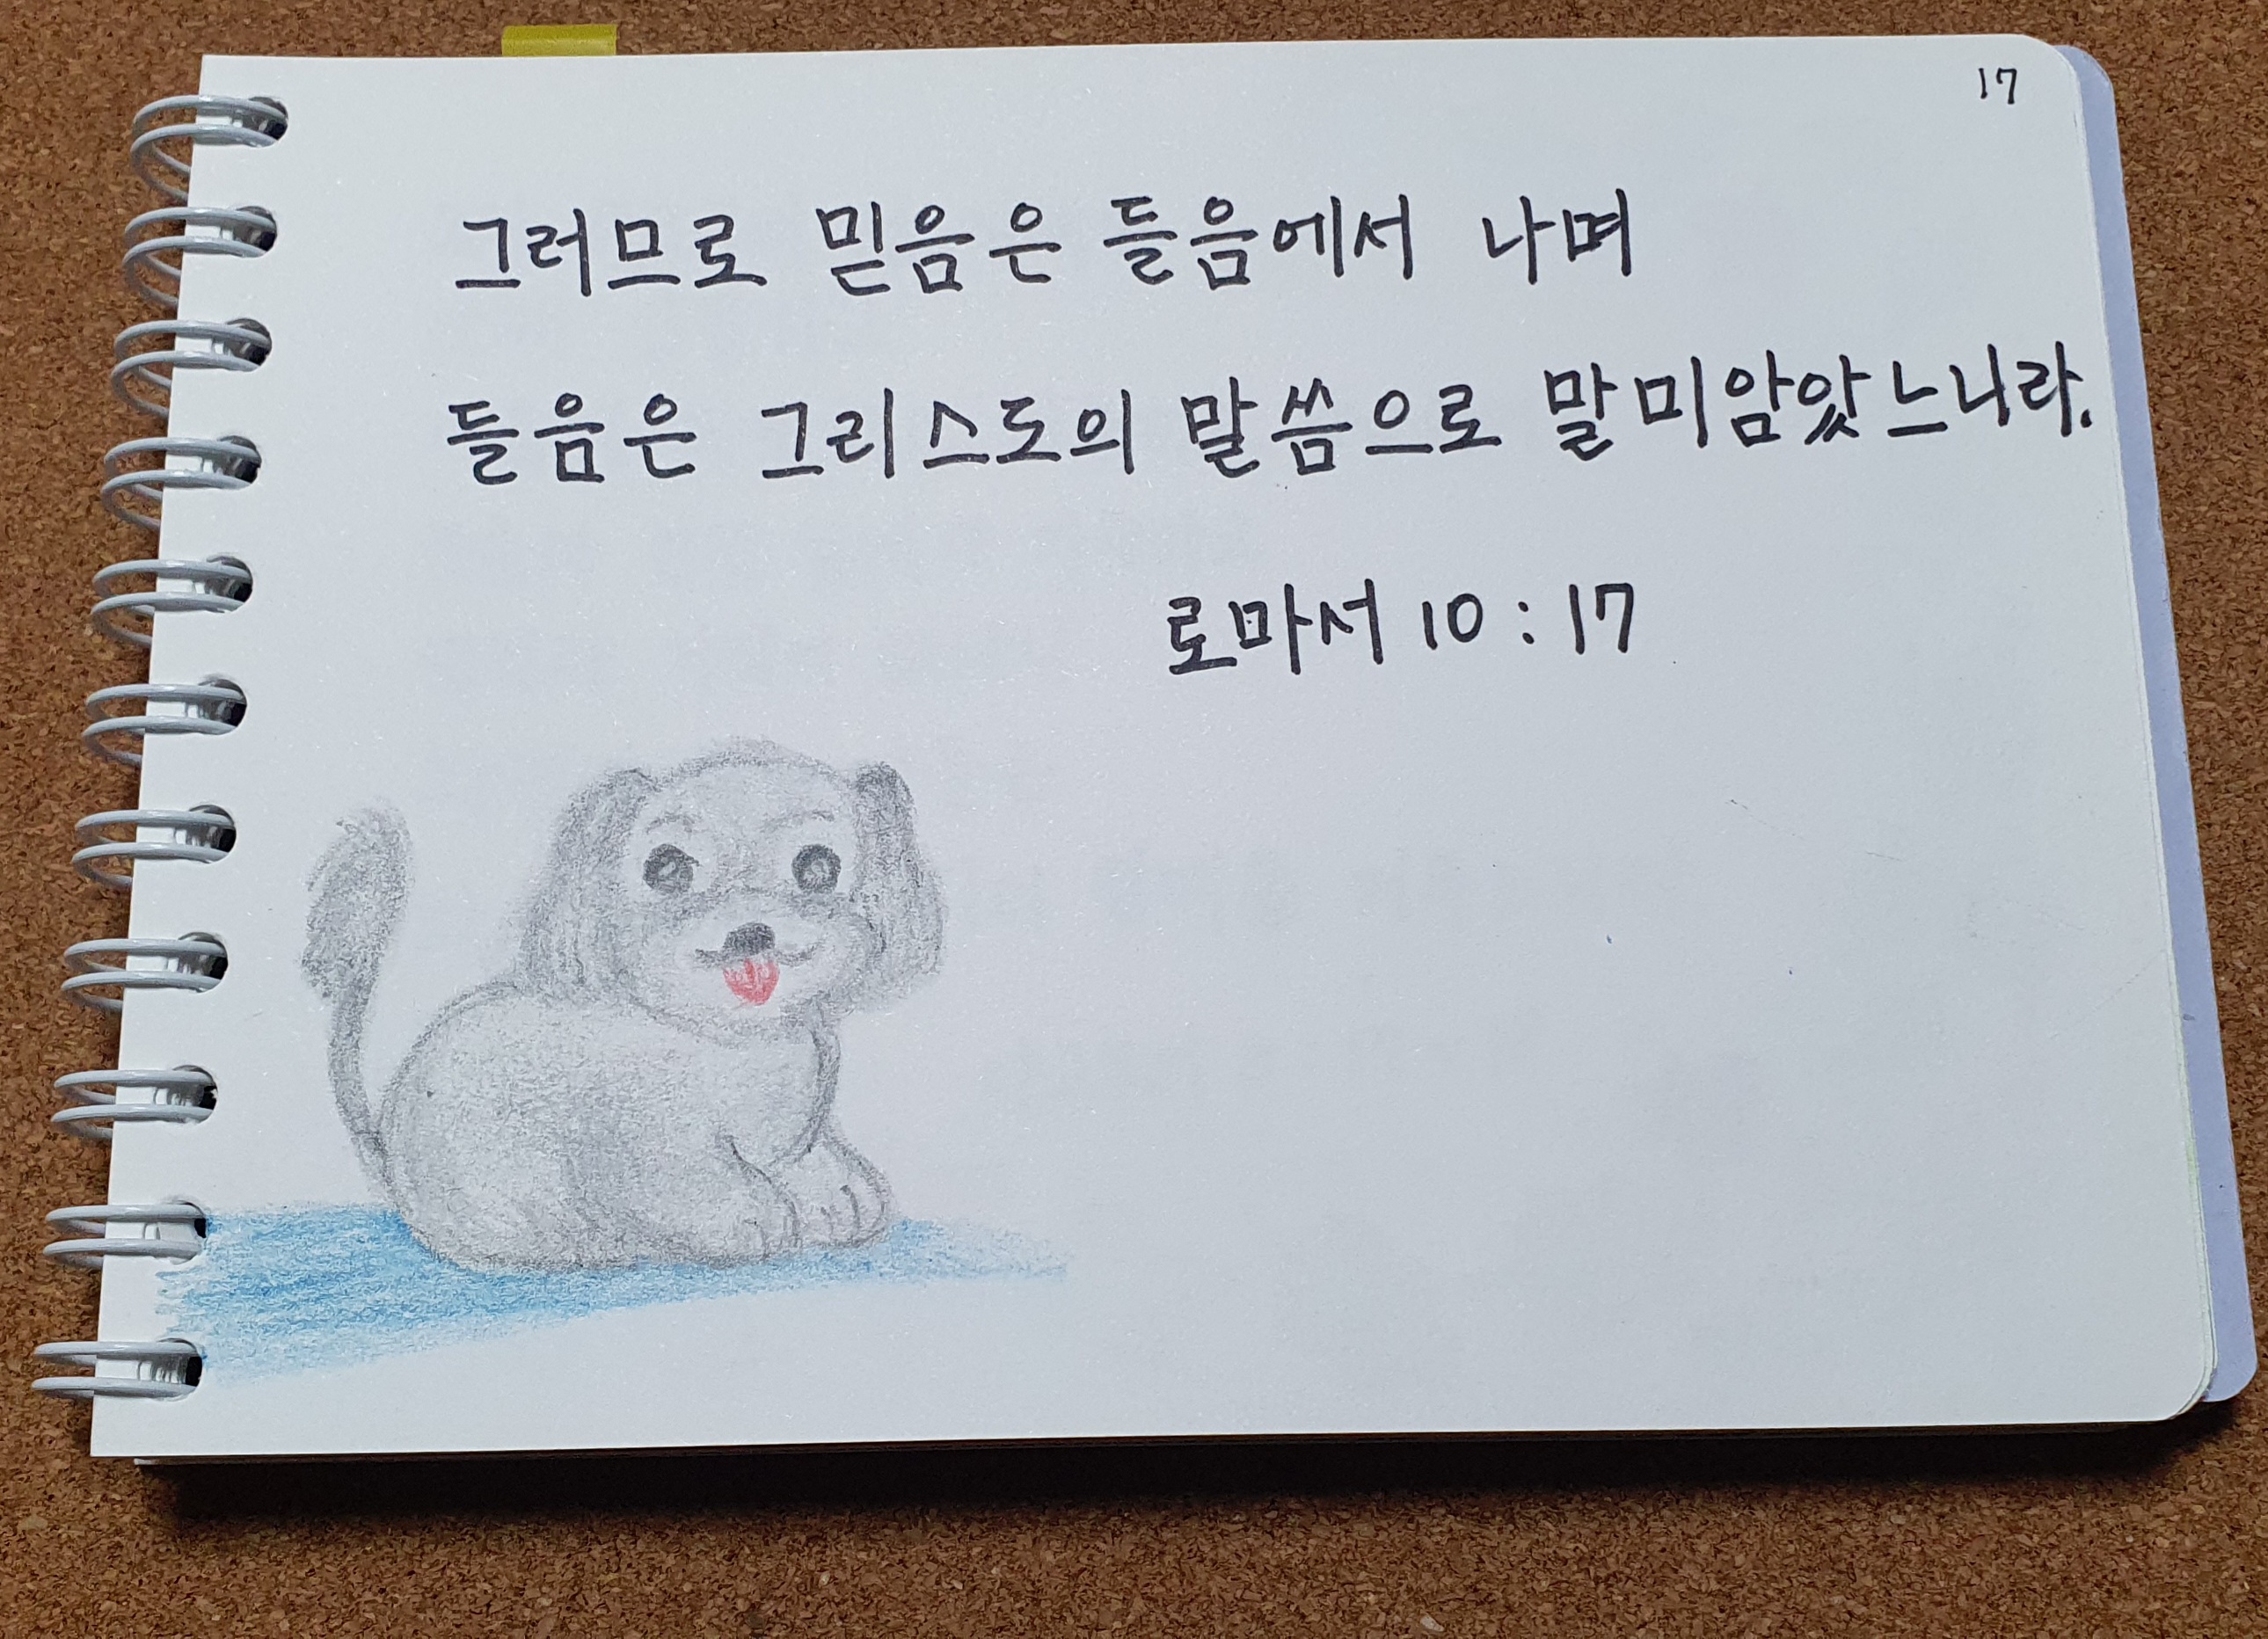 17
그러므로 믿음은 들음에서 나며
들음은 그리스도의 말씀으로 말미암았느니라.
로마서 10:17